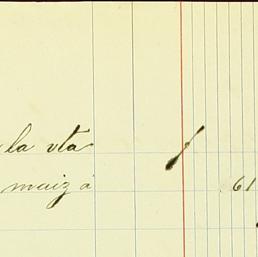 la vta
maiz á 61